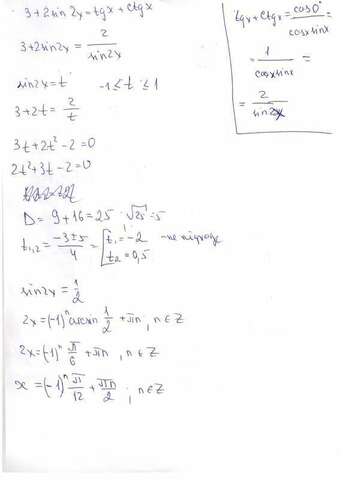 3+2sin 2x = tgx + ctgx
3+2sin2x = 2/sin2x
sin2x = t    -1 ≤ t ≤ 1
3+2t = 2/t
3t+2t²-2=0
2t²+3t-2=0
D = 9+16=25    √25=5
t₁,₂ = (-3±5)/4 = [ t₁=-2
t₂=0,5
sin2x = 1/2
2x=(-1)ⁿ arcsin 1/2 + πn ; n∈Z
2x=(-1)ⁿ π/6 + πn , n∈Z
x = (-1)ⁿ π/12 + πn/2 ; n∈Z
tgx + ctgx = cos0°/cosxsinx =
= 1/cosxsinx =
= 2/sin2x